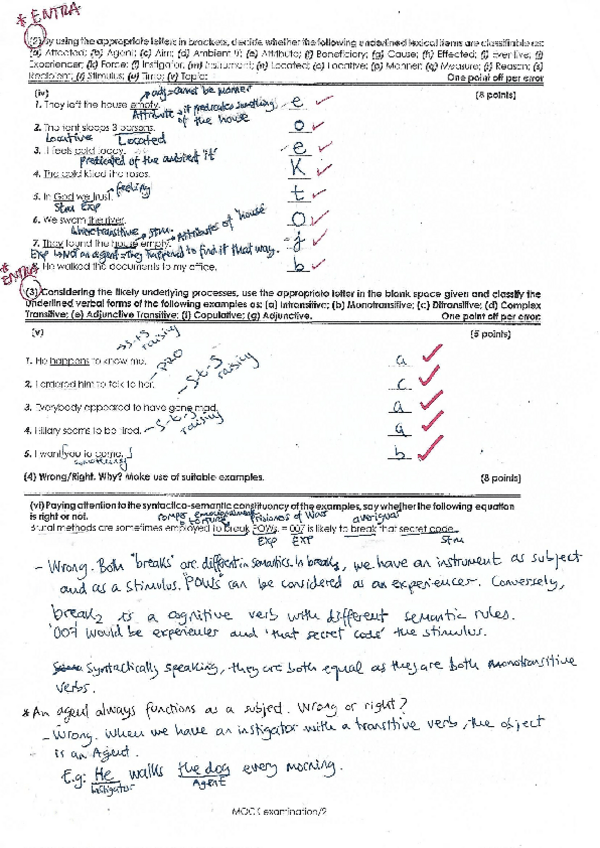 * ENTRA
(2) By using the appropriate letters in brackets, decide whether the following underlined lexical items are classifiable as:
(a) Affected; (b) Agent; (c) Aim; (d) Ambient it; (e) Attribute; (f) Beneficiary; (g) Cause; (h) Effected; (i) Eventive; (j)
Experiencer; (k) Force; (l) Instigator; (m) Instrument; (n) Located; (o) Locative; (p) Manner; (q) Measure; (r) Reason; (s)
Recipient; (t) Stimulus; (u) Time; (v) Topic: One point off per error
(iv) → adj = cannot be manner (8 points)
1. They left the house empty. e ✓
Attribute → it predicates something of the house
2. The tent sleeps 3 persons. o ✓
Locative Located
3. It feels cold today. e ✓
predicated of the ambient "it"
4. The cold killed the roses. K ✓
→ feeling
5. In God we trust. t ✓
Stm Exp
6. We swam the river. o ✓
→ Stm. → Attribute of 'house'
7. They found the house empty. j ✓
Exp → Not an agent = they happened to find it that way.
8. He walked the documents to my office. b ✓
* ENTRA
(3) Considering the likely underlying processes, use the appropriate letter in the blank space given and classify the
underlined verbal forms of the following examples as: (a) Intransitive; (b) Monotransitive; (c) Ditransitive; (d) Complex
Transitive; (e) Adjunctive Transitive; (f) Copulative; (g) Adjunctive. One point off per error:
(v) (5 points)
raising
1. He happens to know me. a ✓
2. I ordered him to talk to her. c ✓
- S-t-S raising
3. Everybody appeared to have gone mad. a ✓
4. Hillary seems to be tired. - S-t-S raising a ✓
5. I want you to come. b ✓
something
(4) Wrong/Right. Why? Make use of suitable examples. (8 points)
(vi) Paying attention to the syntactico-semantic constituency of the examples, say whether the following equation
is right or not.
romper emocionalmente prisioners of wars averiguar
Brutal methods are sometimes employed to break POWs. = 007 is likely to break that secret code.
EXP EXP Stm
- Wrong. Both "breaks" are different in semantics. In break₁, we have an instrument as subject
and as a stimulus. "POWs" can be considered as an experiencer. Conversely,
break₂ is a cognitive verb with different semantic rules.
'007' would be experiencer and 'that secret code' the stimulus.
Syntactically speaking, they are both equal as they are both monotransitive
verbs.
* An agent always functions as a subject. Wrong or right?
- Wrong. When we have an instigator with a transitive verb, the object
is an Agent.
E.g: He walks the dog every morning.
Instigator Agent
MOCK examination/2